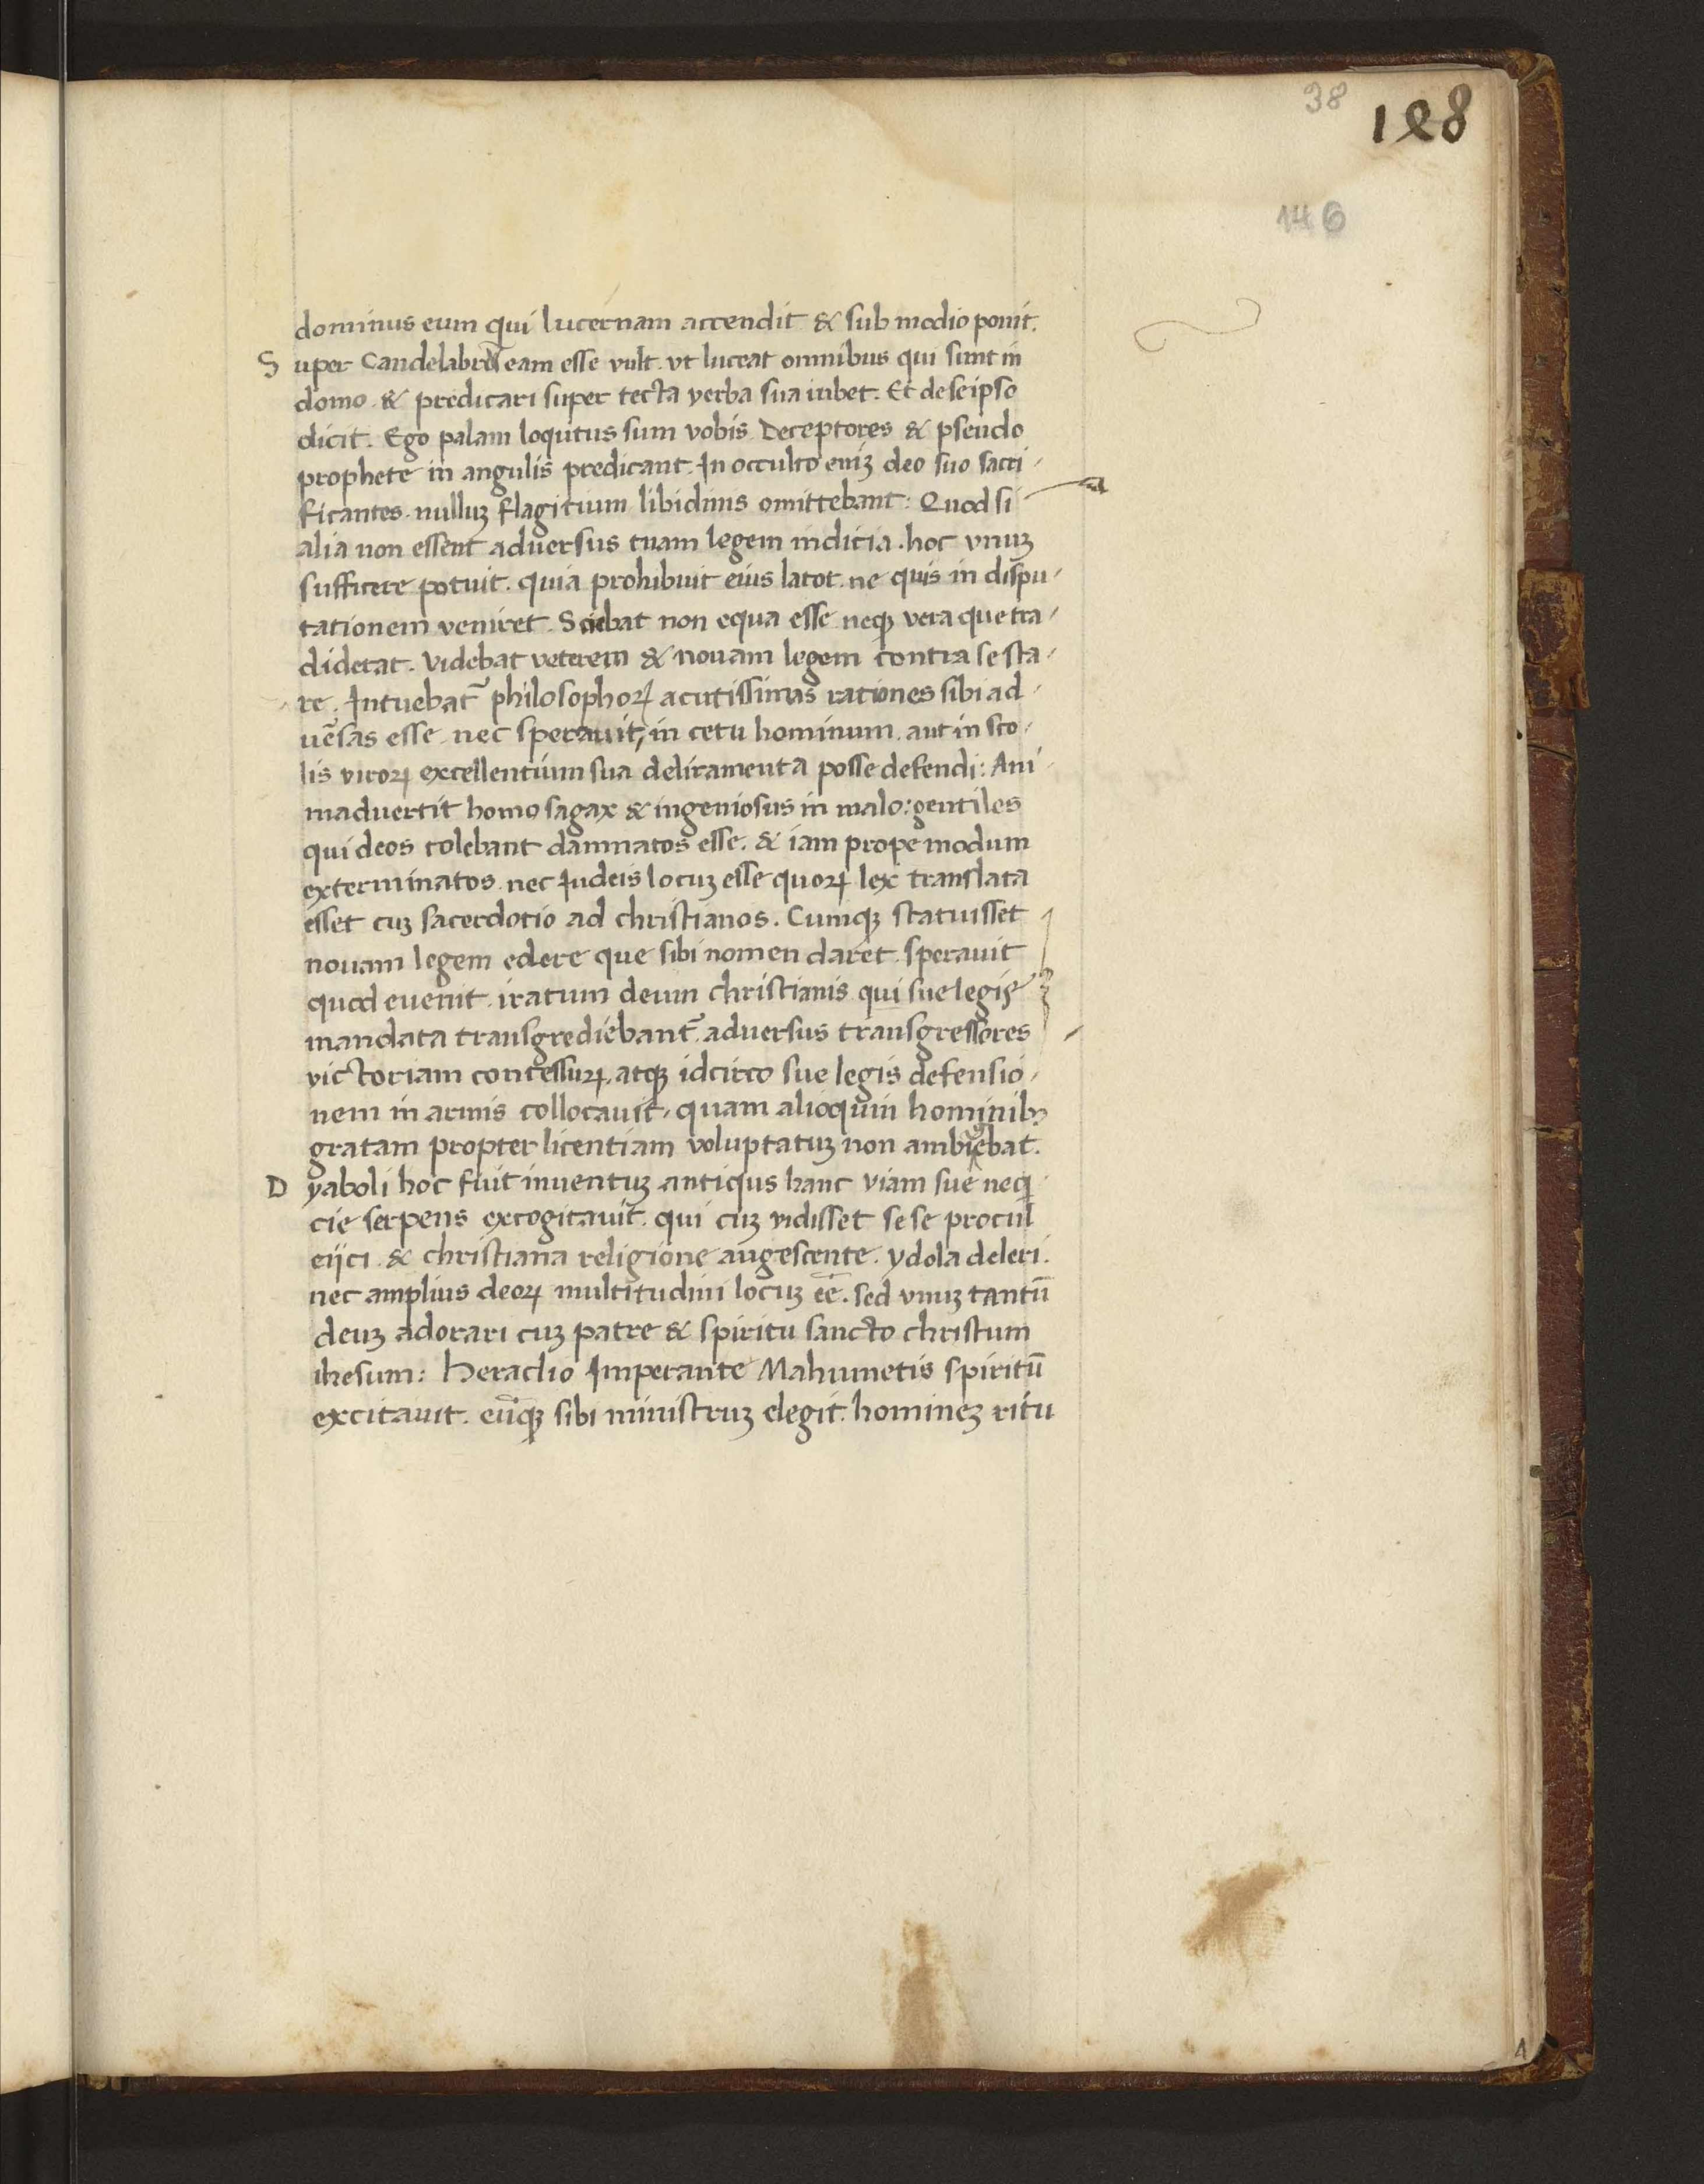 38
188
146
dominus eum qui lucernam accendit & sub modio ponit.
Super Candelabrũ eam esse vult. vt luceat omnibus qui sunt in
domo. & predicari super tecta verba sua iubet. Et de seipso
dicit. Ego palam loqutus sum vobis. Deceptores & pseudo
prophete in angulis predicant. In occulto eniꝫ deo suo sacri-
ficantes. nulluꝫ flagitium libidinis omittebant: Quod si
alia non essent adversus tuam legem indicia. hoc vnuꝫ
sufficere potuit. quia prohibuit eius lator. ne quis in dispu-
tationem veniret. Sciebat non equa esse neqꝫ vera que tra-
diderat. Videbat veterem & nouam legem contra se sta-
re. Intuebat᷑ philosophoꝝ acutissimas rationes sibi ad-
ue᷑sas esse. nec sperauit, in cetu hominum. aut in sco-
lis viroꝝ excellentium sua deliramenta posse defendi: Ani-
maduertit homo sagax & ingeniosus in malo: gentiles
qui deos colebant damnatos esse. & iam prope modum
exterminatos. nec Iudeis locuꝫ esse quoꝝ lex translata
esset cuꝫ sacerdotio ad christianos. Cumqꝫ statuisset
nouam legem edere que sibi nomen daret. sperauit
quod euenit. iratum deum christianis qui sue legis
mandata transgrediebant᷑. adversus transgressores
victoriam concessuꝝ. atqꝫ idcirco sue legis defensio-
nem in armis collocauit. quam alioquin hominibꝫ
gratam propter licentiam voluptatuꝫ non ambigebat.
Dyaboli hoc fuit inuentuꝫ antiqus hanc viam sue neqi-
cie serpens excogitauit. qui cuꝫ vidisset sese procul
eijci. & christiana religione augescente. ydola deleri.
nec amplius deoꝝ multitudini locuꝫ ee̅. sed vnuꝫ tantu̅
deuꝫ adorari cuꝫ patre & spiritu sancto christum
ihesum: Heraclio Imperante Mahumetis spiritu̅
excitauit. eu̅qꝫ sibi ministruꝫ elegit. homineꝫ ritu